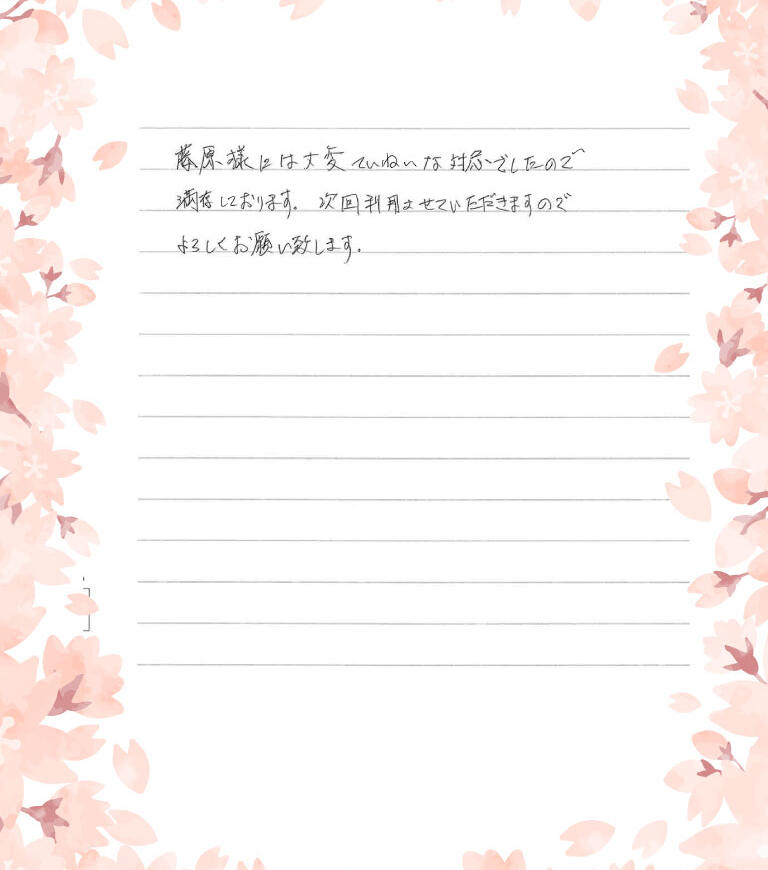 藤原様には大変ていねいな対応でしたので
満足しております。次回利用させていただきますので
よろしくお願い致します。